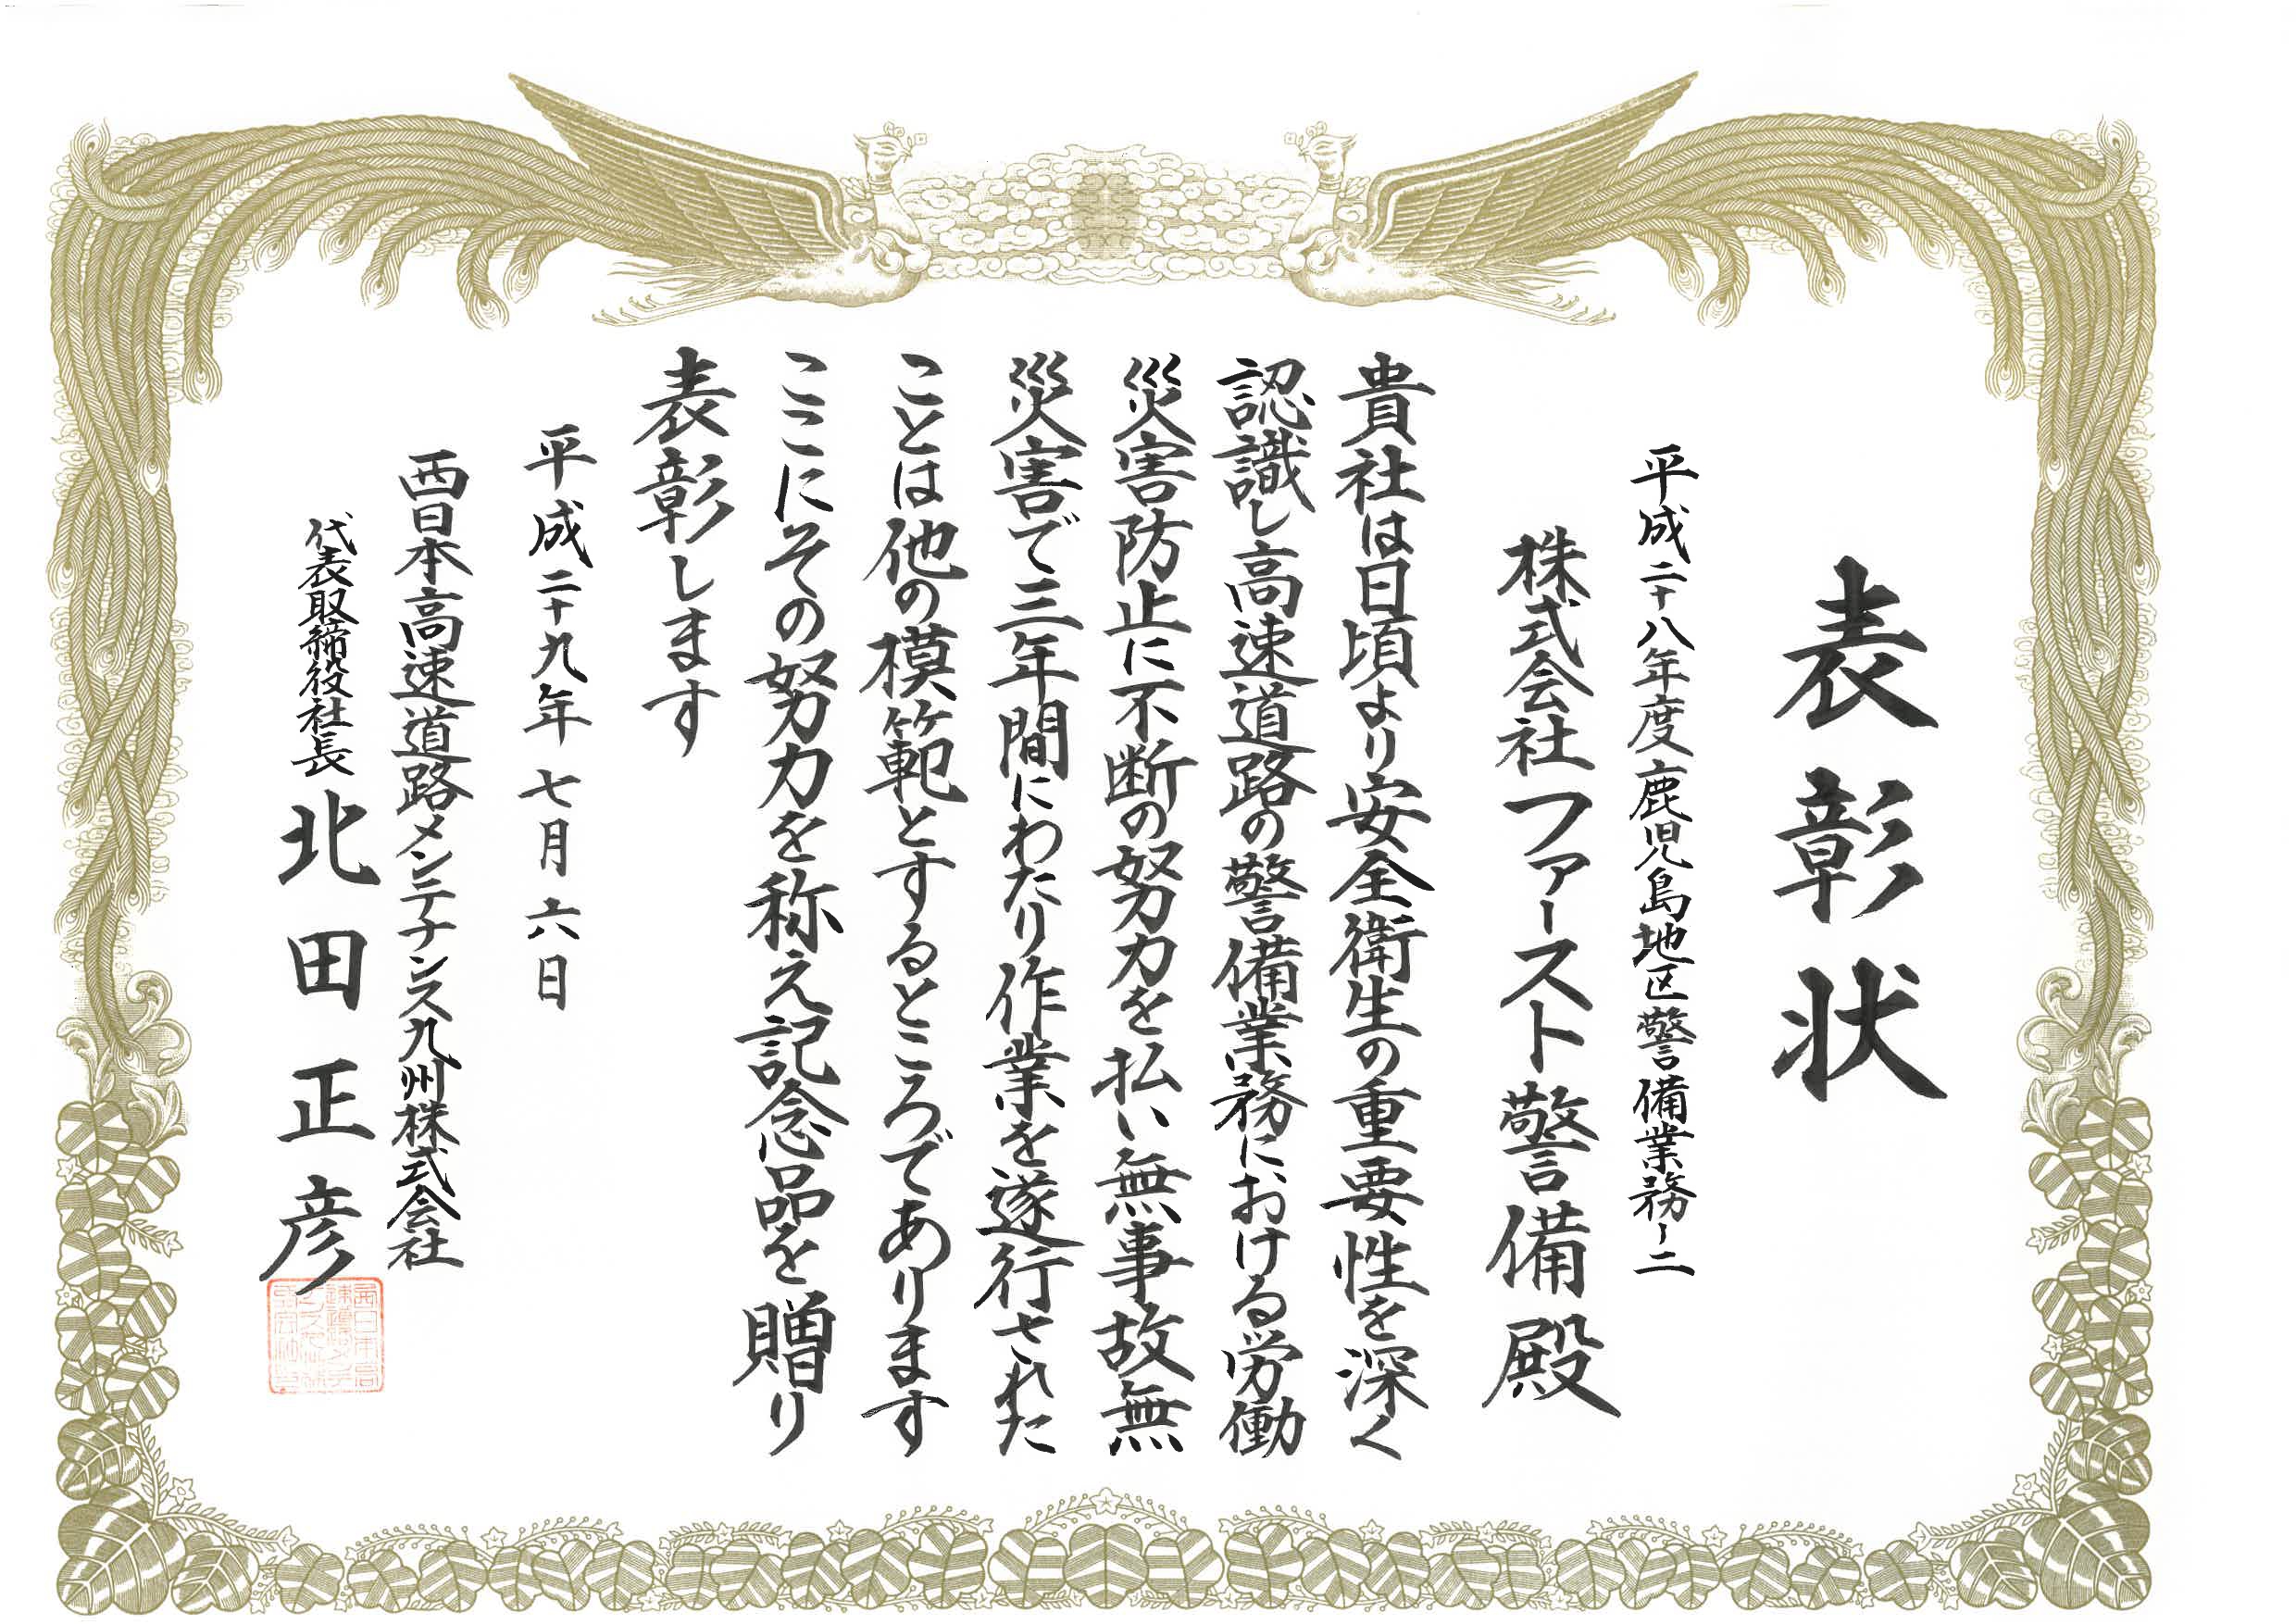 表彰状
平成二十八年度鹿児島地区警備業務ー二
株式会社ファースト警備殿
貴社は日頃より安全衛生の重要性を深く
認識し高速道路の警備業務における労働
災害防止に不断の努力を払い無事故無
災害で三年間にわたり作業を遂行された
ことは他の模範とするところであります
ここにその努力を称え記念品を贈り
表彰します
平成二十九年七月六日
西日本高速道路メンテナンス九州株式会社
代表取締役社長 北田正彦